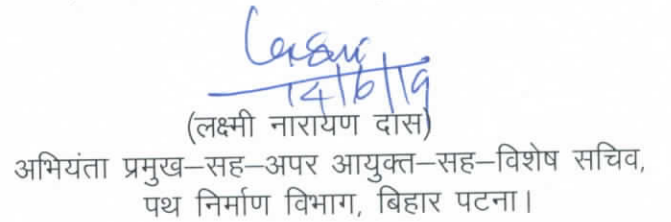 14/6/19
(लक्ष्मी नारायण दास)
अभियंता प्रमुख–सह–अपर आयुक्त–सह–विशेष सचिव,
पथ निर्माण विभाग, बिहार पटना।